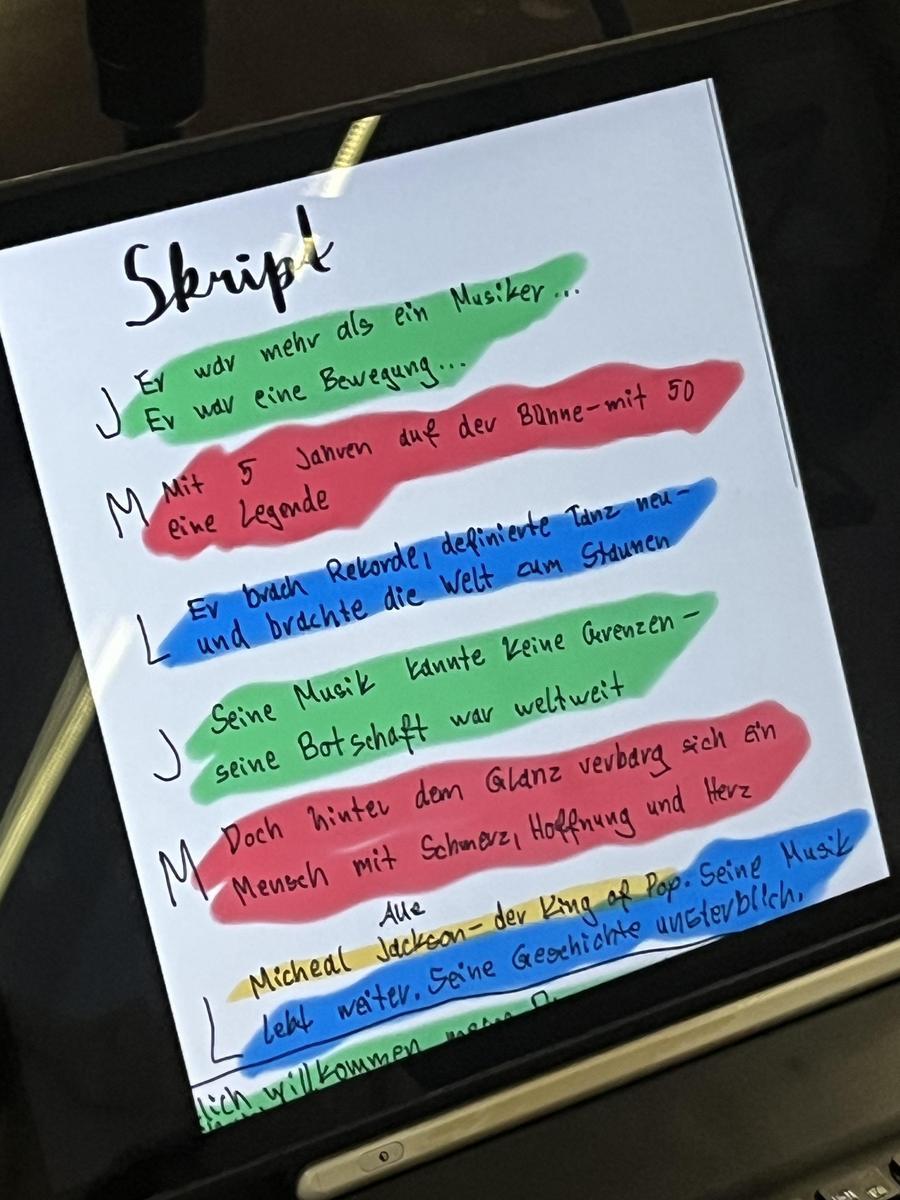 Skript
J Er war mehr als ein Musiker...
Er war eine Bewegung...
M Mit 5 Jahren auf der Bühne-mit 50
eine Legende
Er brach Rekorde, definierte Tanz neu-
L und brachte die Welt zum Staunen
Seine Musik kannte keine Grenzen-
J seine Botschaft war weltweit
Doch hinter dem Glanz verbarg sich ein
M Mensch mit Schmerz, Hoffnung und Herz
Alle
Micheal Jackson- der King of Pop. Seine Musik
L lebt weiter. Seine Geschichte unsterblich.
lich willkommen